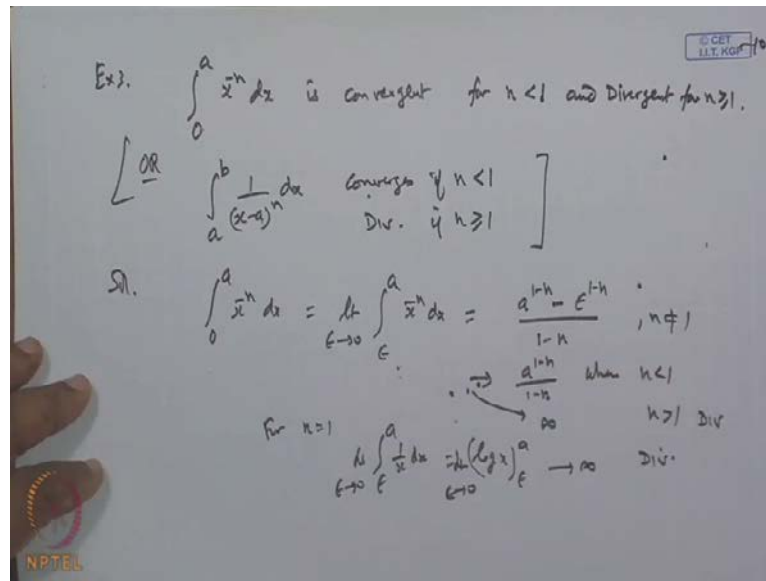 © CET
I.I.T. KGP
Ex3. ∫₀ᵃ x⁻ⁿ dx is convergent for n<1 and Divergent for n≥1.
[OR ∫ₐᵇ 1/(x-a)ⁿ dx converges if n<1
Div. if n≥1 ]
Sol. ∫₀ᵃ x⁻ⁿ dx = lt_{ε→0} ∫_ε^a x⁻ⁿ dx = (a^{1-n} - ε^{1-n})/(1-n) , n≠1
→ a^{1-n}/(1-n) when n<1
∞ n>1 Div
For n=1
lt_{ε→0} ∫_ε^a 1/x dx = lt_{ε→0} (log x)_ε^a → ∞ Div.
NPTEL